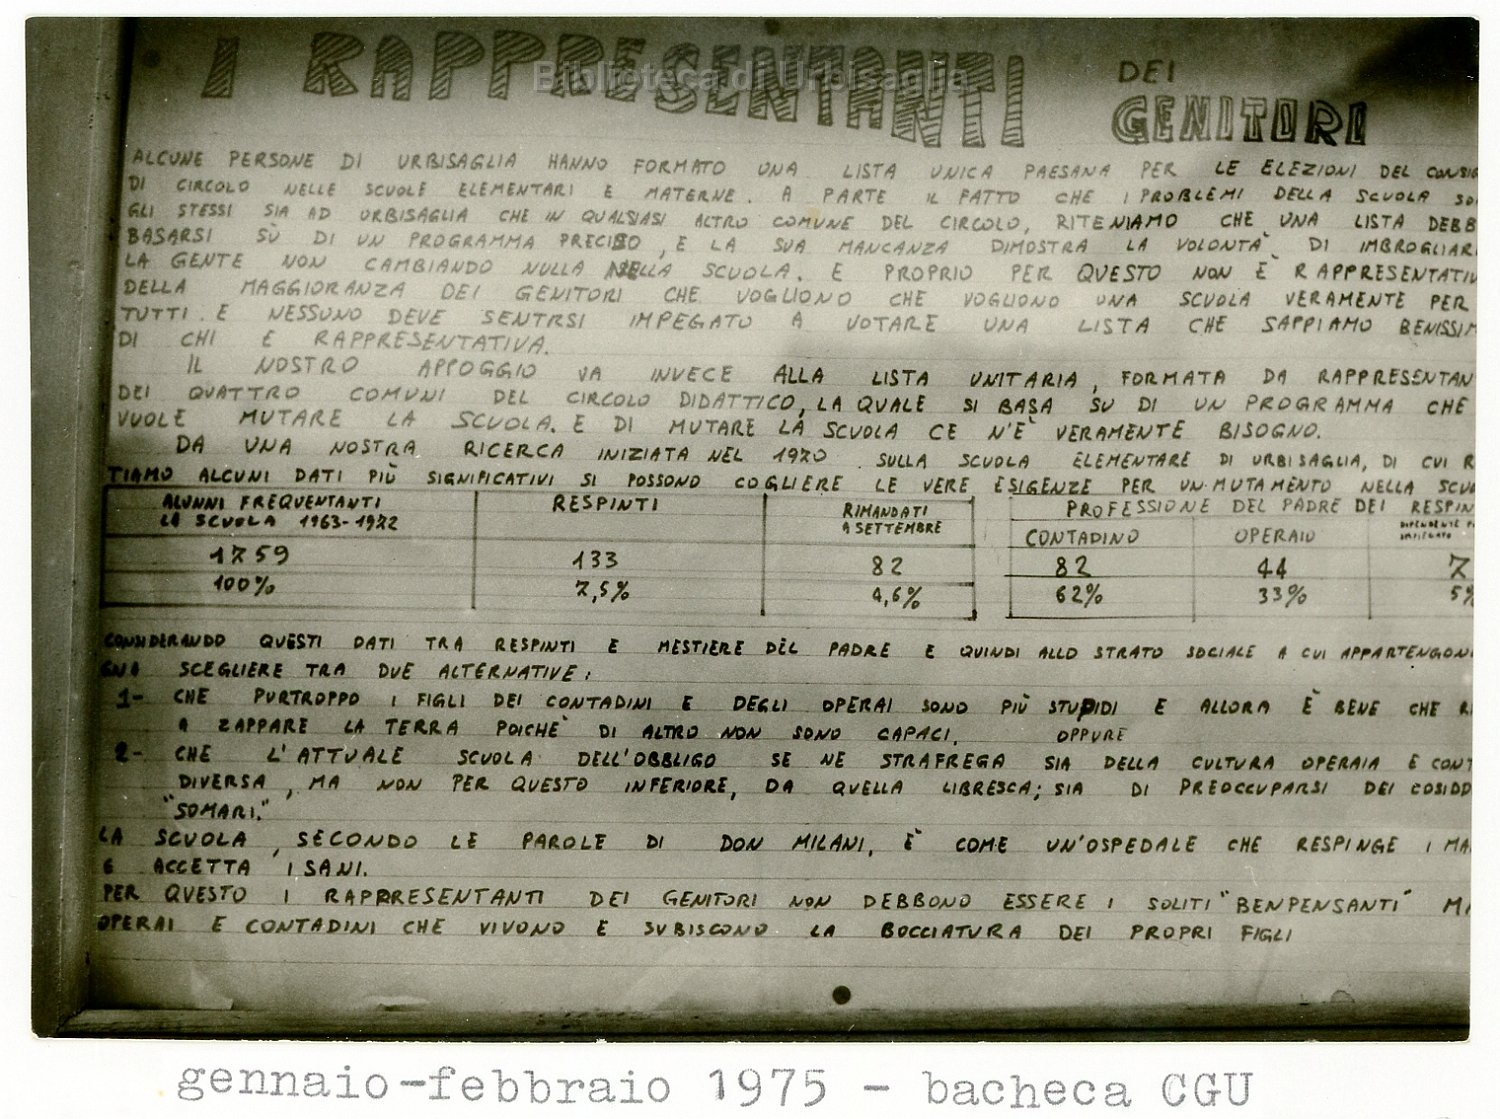 I RAPPRESENTANTI DEI GENITORI
Biblioteca di Urbisaglia
ALCUNE PERSONE DI URBISAGLIA HANNO FORMATO UNA LISTA UNICA PAESANA PER LE ELEZIONI DEL CONSIG
DI CIRCOLO NELLE SCUOLE ELEMENTARI E MATERNE. A PARTE IL FATTO CHE I PROBLEMI DELLA SCUOLA SO
GLI STESSI SIA AD URBISAGLIA CHE IN QUALSIASI ALTRO COMUNE DEL CIRCOLO, RITENIAMO CHE UNA LISTA DEBB
BASARSI SÙ DI UN PROGRAMMA PRECISO, E LA SUA MANCANZA DIMOSTRA LA VOLONTA' DI IMBROGLIAR
LA GENTE NON CAMBIANDO NULLA NELLA SCUOLA. E PROPRIO PER QUESTO NON È RAPPRESENTATIV
DELLA MAGGIORANZA DEI GENITORI CHE VOGLIONO CHE VOGLIONO UNA SCUOLA VERAMENTE PER
TUTTI. E NESSUNO DEVE SENTRSI IMPEGATO A VOTARE UNA LISTA CHE SAPPIAMO BENISSIM
DI CHI E RAPPRESENTATIVA.
IL NOSTRO APPOGGIO VA INVECE ALLA LISTA UNITARIA, FORMATA DA RAPPRESENTAN
DEI QUATTRO COMUNI DEL CIRCOLO DIDATTICO, LA QUALE SI BASA SU DI UN PROGRAMMA CHE
VUOLE MUTARE LA SCUOLA. E DI MUTARE LA SCUOLA CE N'E' VERAMENTE BISOGNO.
DA UNA NOSTRA RICERCA INIZIATA NEL 1970 SULLA SCUOLA ELEMENTARE DI URBISAGLIA, DI CUI R
TIAMO ALCUNI DATI PIÙ SIGNIFICATIVI SI POSSONO COGLIERE LE VERE ESIGENZE PER UN MUTAMENTO NELLA SCU
ALUNNI FREQUENTANTI LA SCUOLA 1963-1972 RESPINTI RIMANDATI A SETTEMBRE PROFESSIONE DEL PADRE DEI RESPIN
CONTADINO OPERAIO DIPENDENTE IMPIEGATO
1759 133 82 82 44 7
100% 7,5% 4,6% 62% 33% 5%
CONSIDERANDO QUESTI DATI TRA RESPINTI E MESTIERE DEL PADRE E QUINDI ALLO STRATO SOCIALE A CUI APPARTENGON
GNA SCEGLIERE TRA DUE ALTERNATIVE:
1- CHE PURTROPPO I FIGLI DEI CONTADINI E DEGLI OPERAI SONO PIÙ STUPIDI E ALLORA È BENE CHE RI
A ZAPPARE LA TERRA POICHE' DI ALTRO NON SONO CAPACI. OPPURE
2- CHE L'ATTUALE SCUOLA DELL'OBBLIGO SE NE STRAFREGA SIA DELLA CULTURA OPERAIA E CONT
DIVERSA, MA NON PER QUESTO INFERIORE, DA QUELLA LIBRESCA; SIA DI PREOCCUPARSI DEI COSIDD
"SOMARI."
LA SCUOLA, SECONDO LE PAROLE DI DON MILANI, È COME UN'OSPEDALE CHE RESPINGE I MA
E ACCETTA I SANI.
PER QUESTO I RAPPRESENTANTI DEI GENITORI NON DEBBONO ESSERE I SOLITI "BENPENSANTI" MA
OPERAI E CONTADINI CHE VIVONO E SUBISCONO LA BOCCIATURA DEI PROPRI FIGLI
gennaio-febbraio 1975 - bacheca CGU